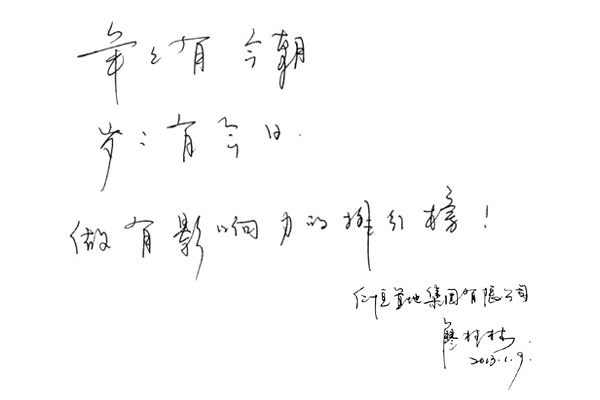 年々有今朝
岁々有今日.
做有影响力的排行榜!
仁恒置地集团有限公司
2013.1.9.